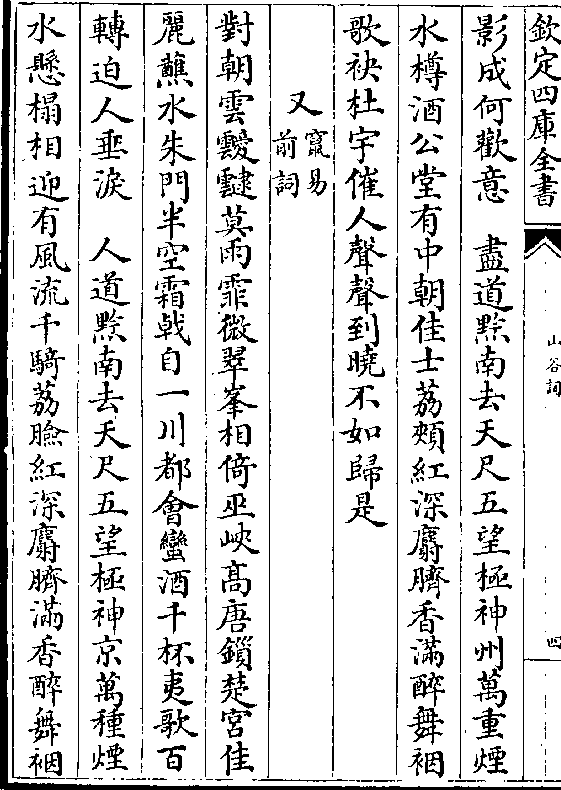 欽定四庫全書
山谷詞
四
影成何歡意　盡道黔南去天尺五望極神州萬重煙
水樽酒公堂有中朝佳士荔頰紅深麝臍香滿醉舞裀
歌袂杜宇催人聲聲到曉不如歸是
又竄易前詞
對朝雲靉靆莫雨霏微翠峯相倚巫峽髙唐鎖楚宮佳
麗蘸水朱門半空霜戟自一川都會蠻酒千杯夷歌百
轉迫人垂淚　人道黔南去天尺五望極神京萬種煙
水懸榻相迎有風流千騎荔臉紅深麝臍滿香醉舞裀